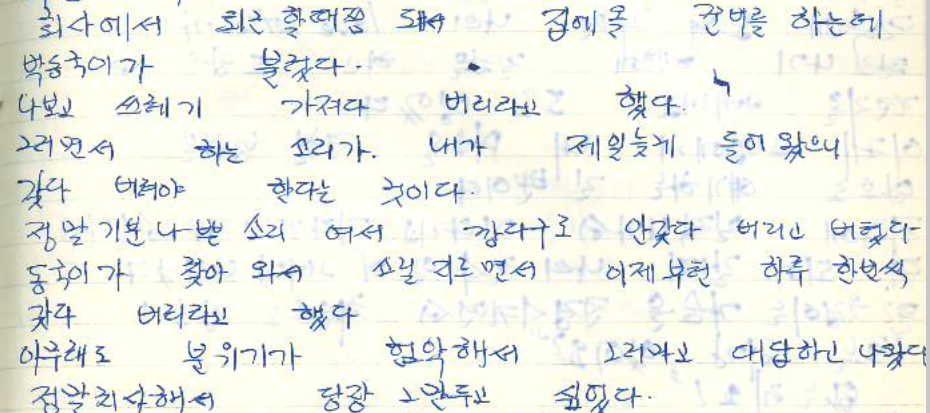 회사에서 퇴근 할때쯤 돼서 집에올 준비를 하는데
박동국이가 불렀다.
나보고 쓰레기 가져다 버리라고 했다.
그러면서 하는 소리가. 내가 제일늦게 들어왔으니
갖다 버려야 한다는 것이다.
정말 기분나쁜 소리 여서 깡다구로 안갖다 버리고 버텼다
동국이가 찾아 와서 소릴 지르면서 이제부턴 하루 한번씩
갖다 버리라고 했다
아무래도 분위기가 험악해서 그러자고 대답하고 나왔다
정말치사해서 당장 그만두고 싶었다.